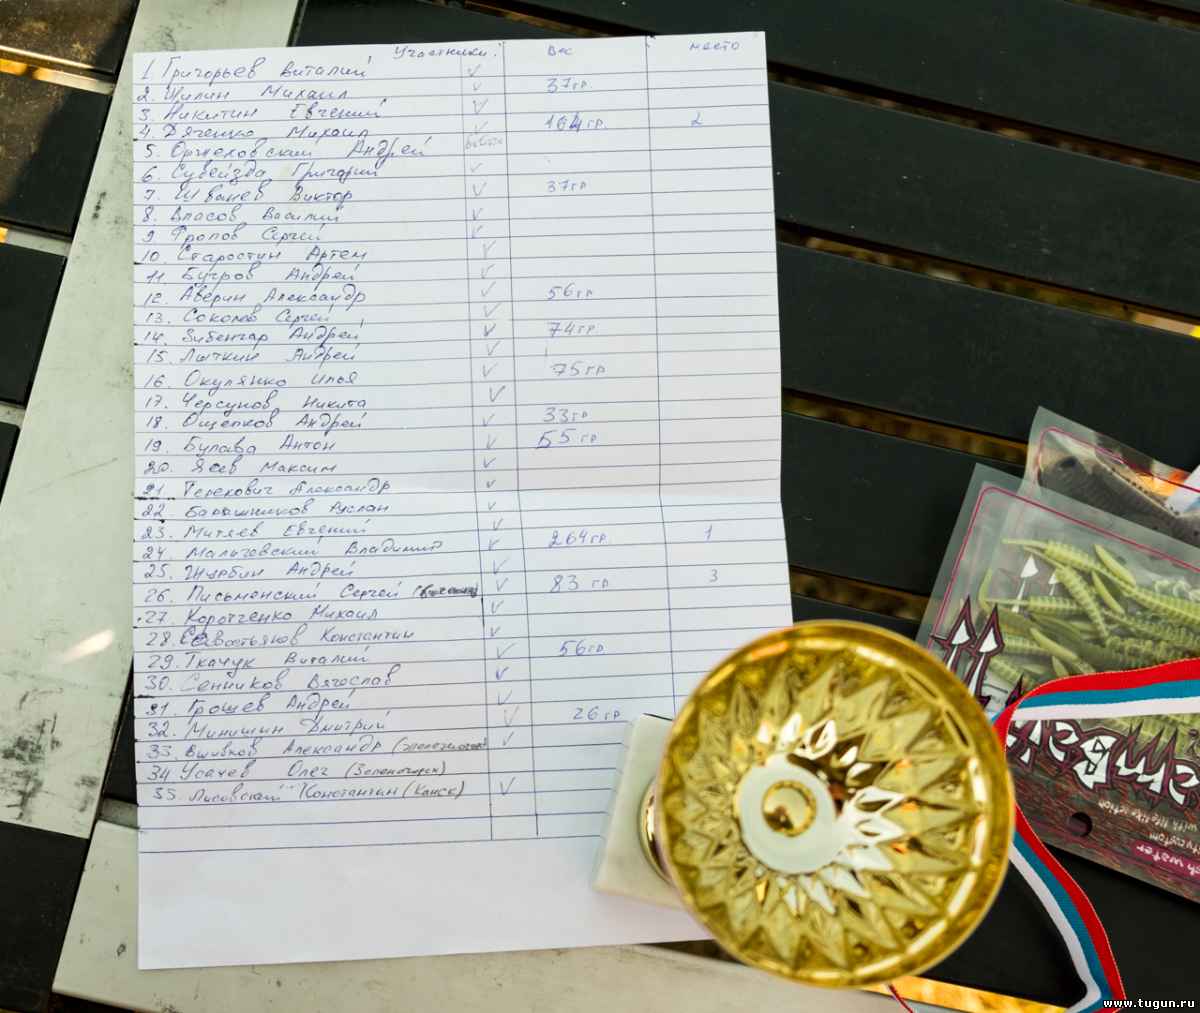 Участники: Вес место
1 Григорьев Виталий
2. Шипин Михаил 37гр.
3. Никитин Евгений
4. Дяченко Михаил 164гр. 2
5. Оржеховский Андрей
6. Сувейзда Григорий
7. Иванев Виктор 37гр
8. Власов Василий
9 Фролов Сергей
10 Старостин Артем
11. Бугров Андрей
12. Аверин Александр 56гр
13. Соколов Сергей
14. Зибенгар Андрей 74гр
15. Лыткин Андрей
16. Окулянко Илья 75гр
17. Черсунов Никита
18. Ощепков Андрей 33гр
19. Булава Антон 55гр
20. Яев Максим
21. Терехович Александр
22. Барашников Руслан
23. Митяев Евгений
24. Мальговский Владимир 264гр. 1
25. Журбин Андрей
26. Письменский Сергей 83 гр 3
27. Коротченко Михаил
28. Севостьянов Константин
29. Ткачук Виталий 56гр
30. Сенников Вячеслав
31. Грошев Андрей
32. Минишин Дмитрий 26гр
33. Вшивков Александр (Зеленогорск)
34 Усачев Олег (Зеленогорск)
35. Лисовский Константин (Канск)
www.tugun.ru